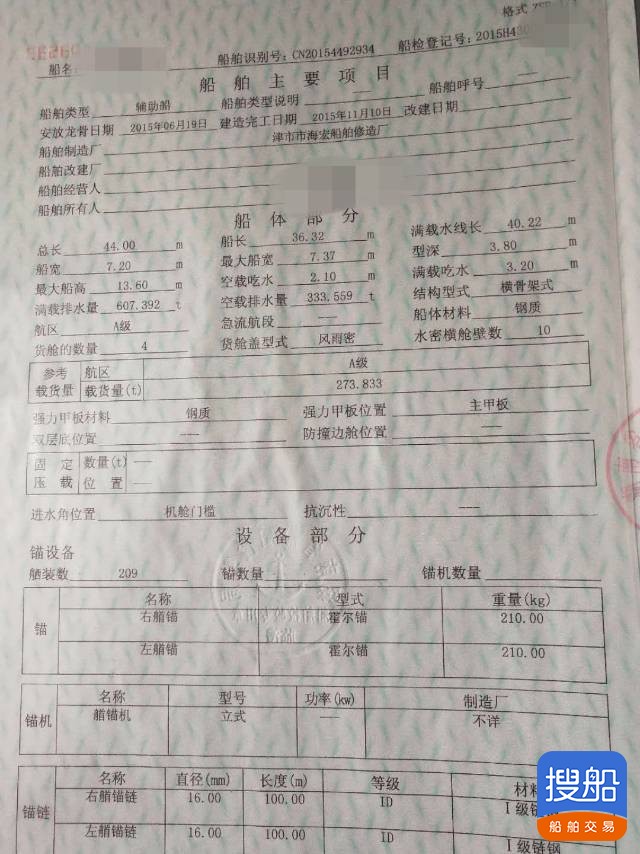 格式
船名: 船舶识别号: CN20154492934 船检登记号: 2015H430
船舶主要项目
船舶类型 辅助船 船舶类型说明 —— 船舶呼号 ——
安放龙骨日期 2015年06月19日 建造完工日期 2015年11月10日 改建日期
船舶制造厂 津市市海宏船舶修造厂
船舶改建厂
船舶经营人
船舶所有人
船体部分
总长 44.00 m 船长 36.32 m 满载水线长 40.22 m
船宽 7.20 m 最大船宽 7.37 m 型深 3.80 m
最大船高 13.60 m 空载吃水 2.10 m 满载吃水 3.20 m
满载排水量 607.392 t 空载排水量 333.559 t 结构型式 横骨架式
航区 A级 急流航段 --- 船体材料 钢质
货舱的数量 4 货舱盖型式 风雨密 水密横舱壁数 10
参考载货量 航区 A级
载货量(t) 273.833
强力甲板材料 钢质 强力甲板位置 主甲板
双层底位置 --- 防撞边舱位置 ---
固定压载 数量(t) ——
位置 ——
进水角位置 机舱门槛 抗沉性 ---
设备部分
锚设备
舾装数 209 锚数量 锚机数量
锚 名称 型式 重量(kg)
右艏锚 霍尔锚 210.00
左艏锚 霍尔锚 210.00
锚机 名称 型号 功率(kw) 制造厂
艏锚机 立式 —— 不详
锚链 名称 直径(mm) 长度(m) 等级 材料
右艏锚链 16.00 100.00 ID I级链钢
左艏锚链 16.00 100.00 ID I级链钢
搜船
船舶交易